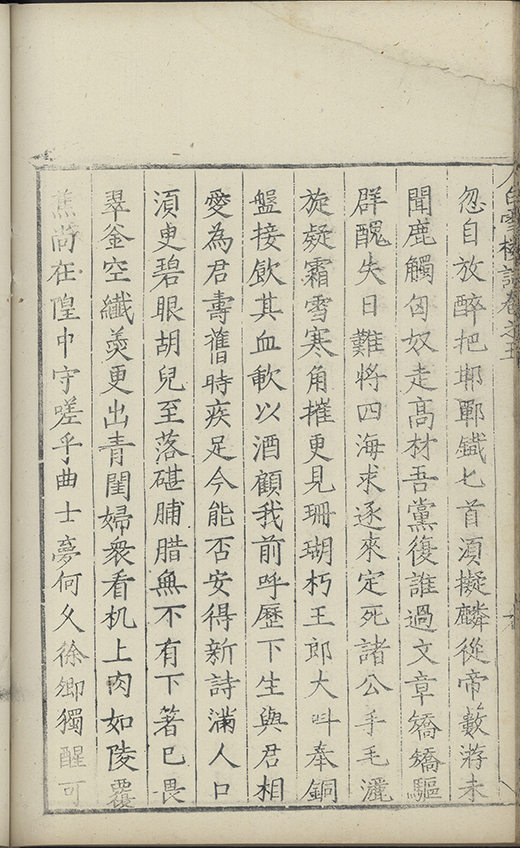 白雪樓詩卷之五
忽自放醉把邯鄲鐵匕首須擬麟從帝籔游未
聞鹿觸匈奴走高材吾黨復誰過文章矯矯驅
群醜失日難將四海求逐來定死諸公手毛灑
旋疑霜雪寒角摧更見珊瑚朽王郎大斗奉銅
盤接飲其血軟以酒顧我前呼歷下生與君相
愛為君壽舊時疾足今能否安得新詩滿人口
須更碧眼胡兒至落碪脯腊無不有下著已畏
翠釜空纖羹更出青閨婦衆看机上肉如陵覆
蕉尚在隍中守嗟乎曲士夢何久徐卿獨醒可